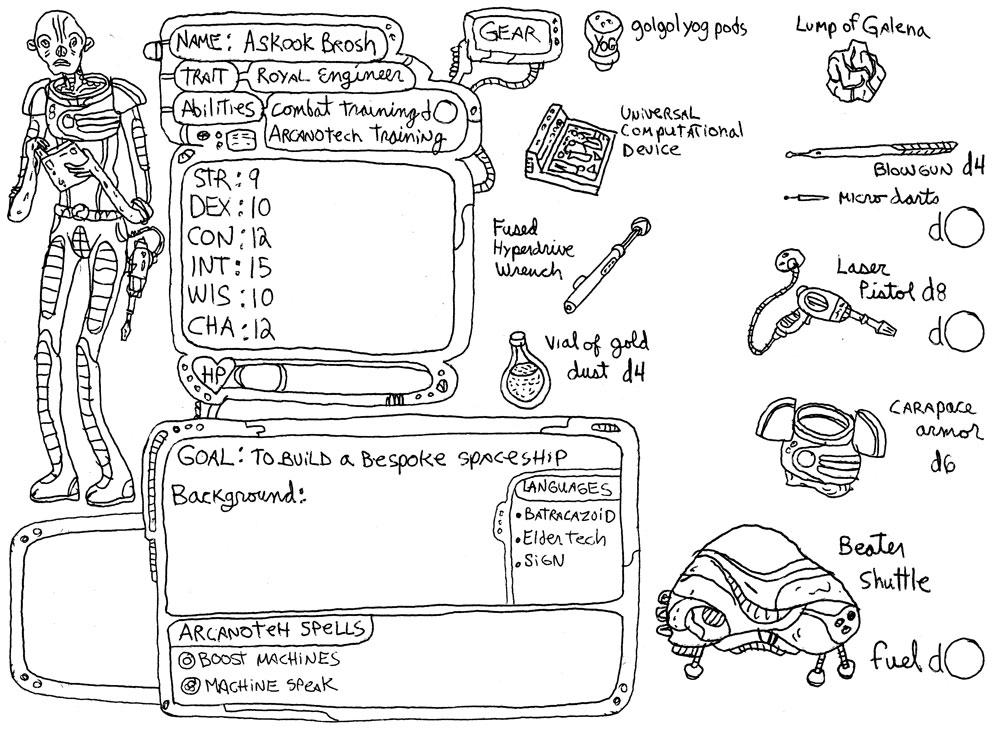 NAME: ASKOOK BROSH
TRAIT ROYAL ENGINEER
ABILITIES COMBAT TRAINING d
ARCANOTECH TRAINING
STR: 9
DEX: 10
CON: 12
INT: 15
WIS: 10
CHA: 12
HP
GOAL: TO BUILD A BESPOKE SPACESHIP
Background:
LANGUAGES
• BATRACAZOID
• Elder tech
• SIGN
ARCANOTEH SPELLS
BOOST MACHINES
MACHINE SPEAK
GEAR
YOG
golgol yog pods
Lump of Galena
UNIVERSAL
COMPUTATIONAL
DEVICE
BLOWGUN d4
MICRO darts
d
Fused
Hyperdrive
Wrench
Laser
Pistol d8
d
Vial of gold
dust d4
CARAPACE
armor
d6
Beater
Shuttle
fuel d